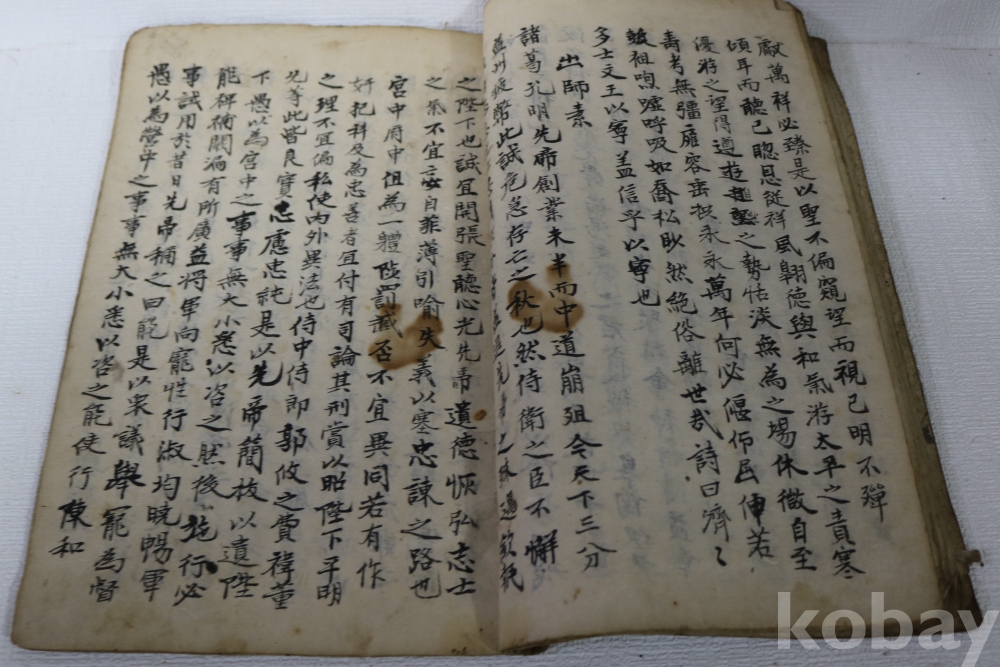 獻萬祥必臻是以聖不偏窺望而視已明不殫
傾耳而聽已聰恩從祥風翱德與和氣游太平之責塞
優游之望得遵遊自然之勢恬淡無為之場休徵自至
壽考無疆雍容垂拱永永萬年何必偃仰屈伸若
彭祖呴噓呼吸如喬松眇然絶俗離世哉詩曰濟〻
多士文王以寧盖信乎以寧也
出師表
諸葛孔明先帝創業未半而中道崩殂今天下三分
益州疲弊此誠危急存亡之秋也然侍衛之臣不懈
之陛下也誠宜開張聖聽以光先帝遺德恢弘志士
之氣不宜妄自菲薄引喻失義以塞忠諫之路也
宮中府中俱為一體陟罰臧否不宜異同若有作
奸犯科及為忠善者宜付有司論其刑賞以昭陛下平明
之理不宜偏私使內外異法也侍中侍郎郭攸之費褘董
允等此皆良實志慮忠純是以先帝簡拔以遺陛
下愚以為宮中之事事無大小悉以咨之然後施行必
能裨補闕漏有所廣益將軍向寵性行淑均曉暢軍
事試用於昔日先帝稱之曰能是以衆議舉寵為督
愚以為營中之事事無大小悉以咨之能使行陳和
kobay